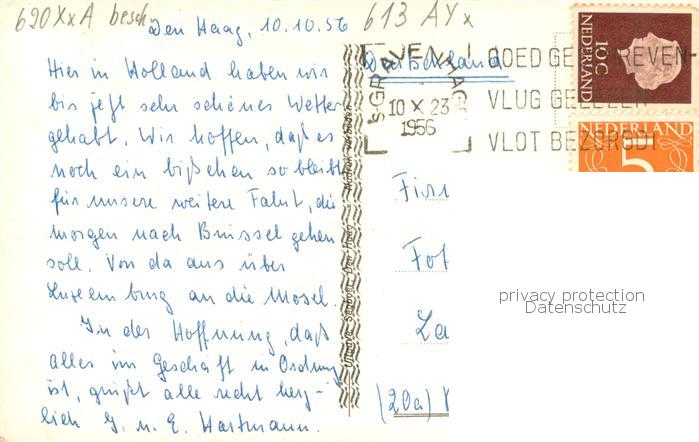 620XxA besch
Den Haag, 10.10.56
613 AYx
Hier in Holland haben wir
bis jetzt sehr schönes Wetter
gehabt. Wir hoffen, daß es
noch ein bißchen so bleibt
für unsere weitere Fahrt, die
morgen nach Brüssel gehen
soll. Von da aus über
Luxemburg an die Mosel.
In der Hoffnung, daß
alles im Geschäft in Ordnung
ist, grüßt alle recht herz-
lich G. u. E. Hartmann.
Deutschland
'SGRAVENHAGE
10 X 23
1956
GOED GESCHREVEN-
VLUG GELEZEN
VLOT BEZORGD!
NEDERLAND
10 C
NEDERLAND
5
Fir
Fot
La
(20a)
privacy protection
Datenschutz